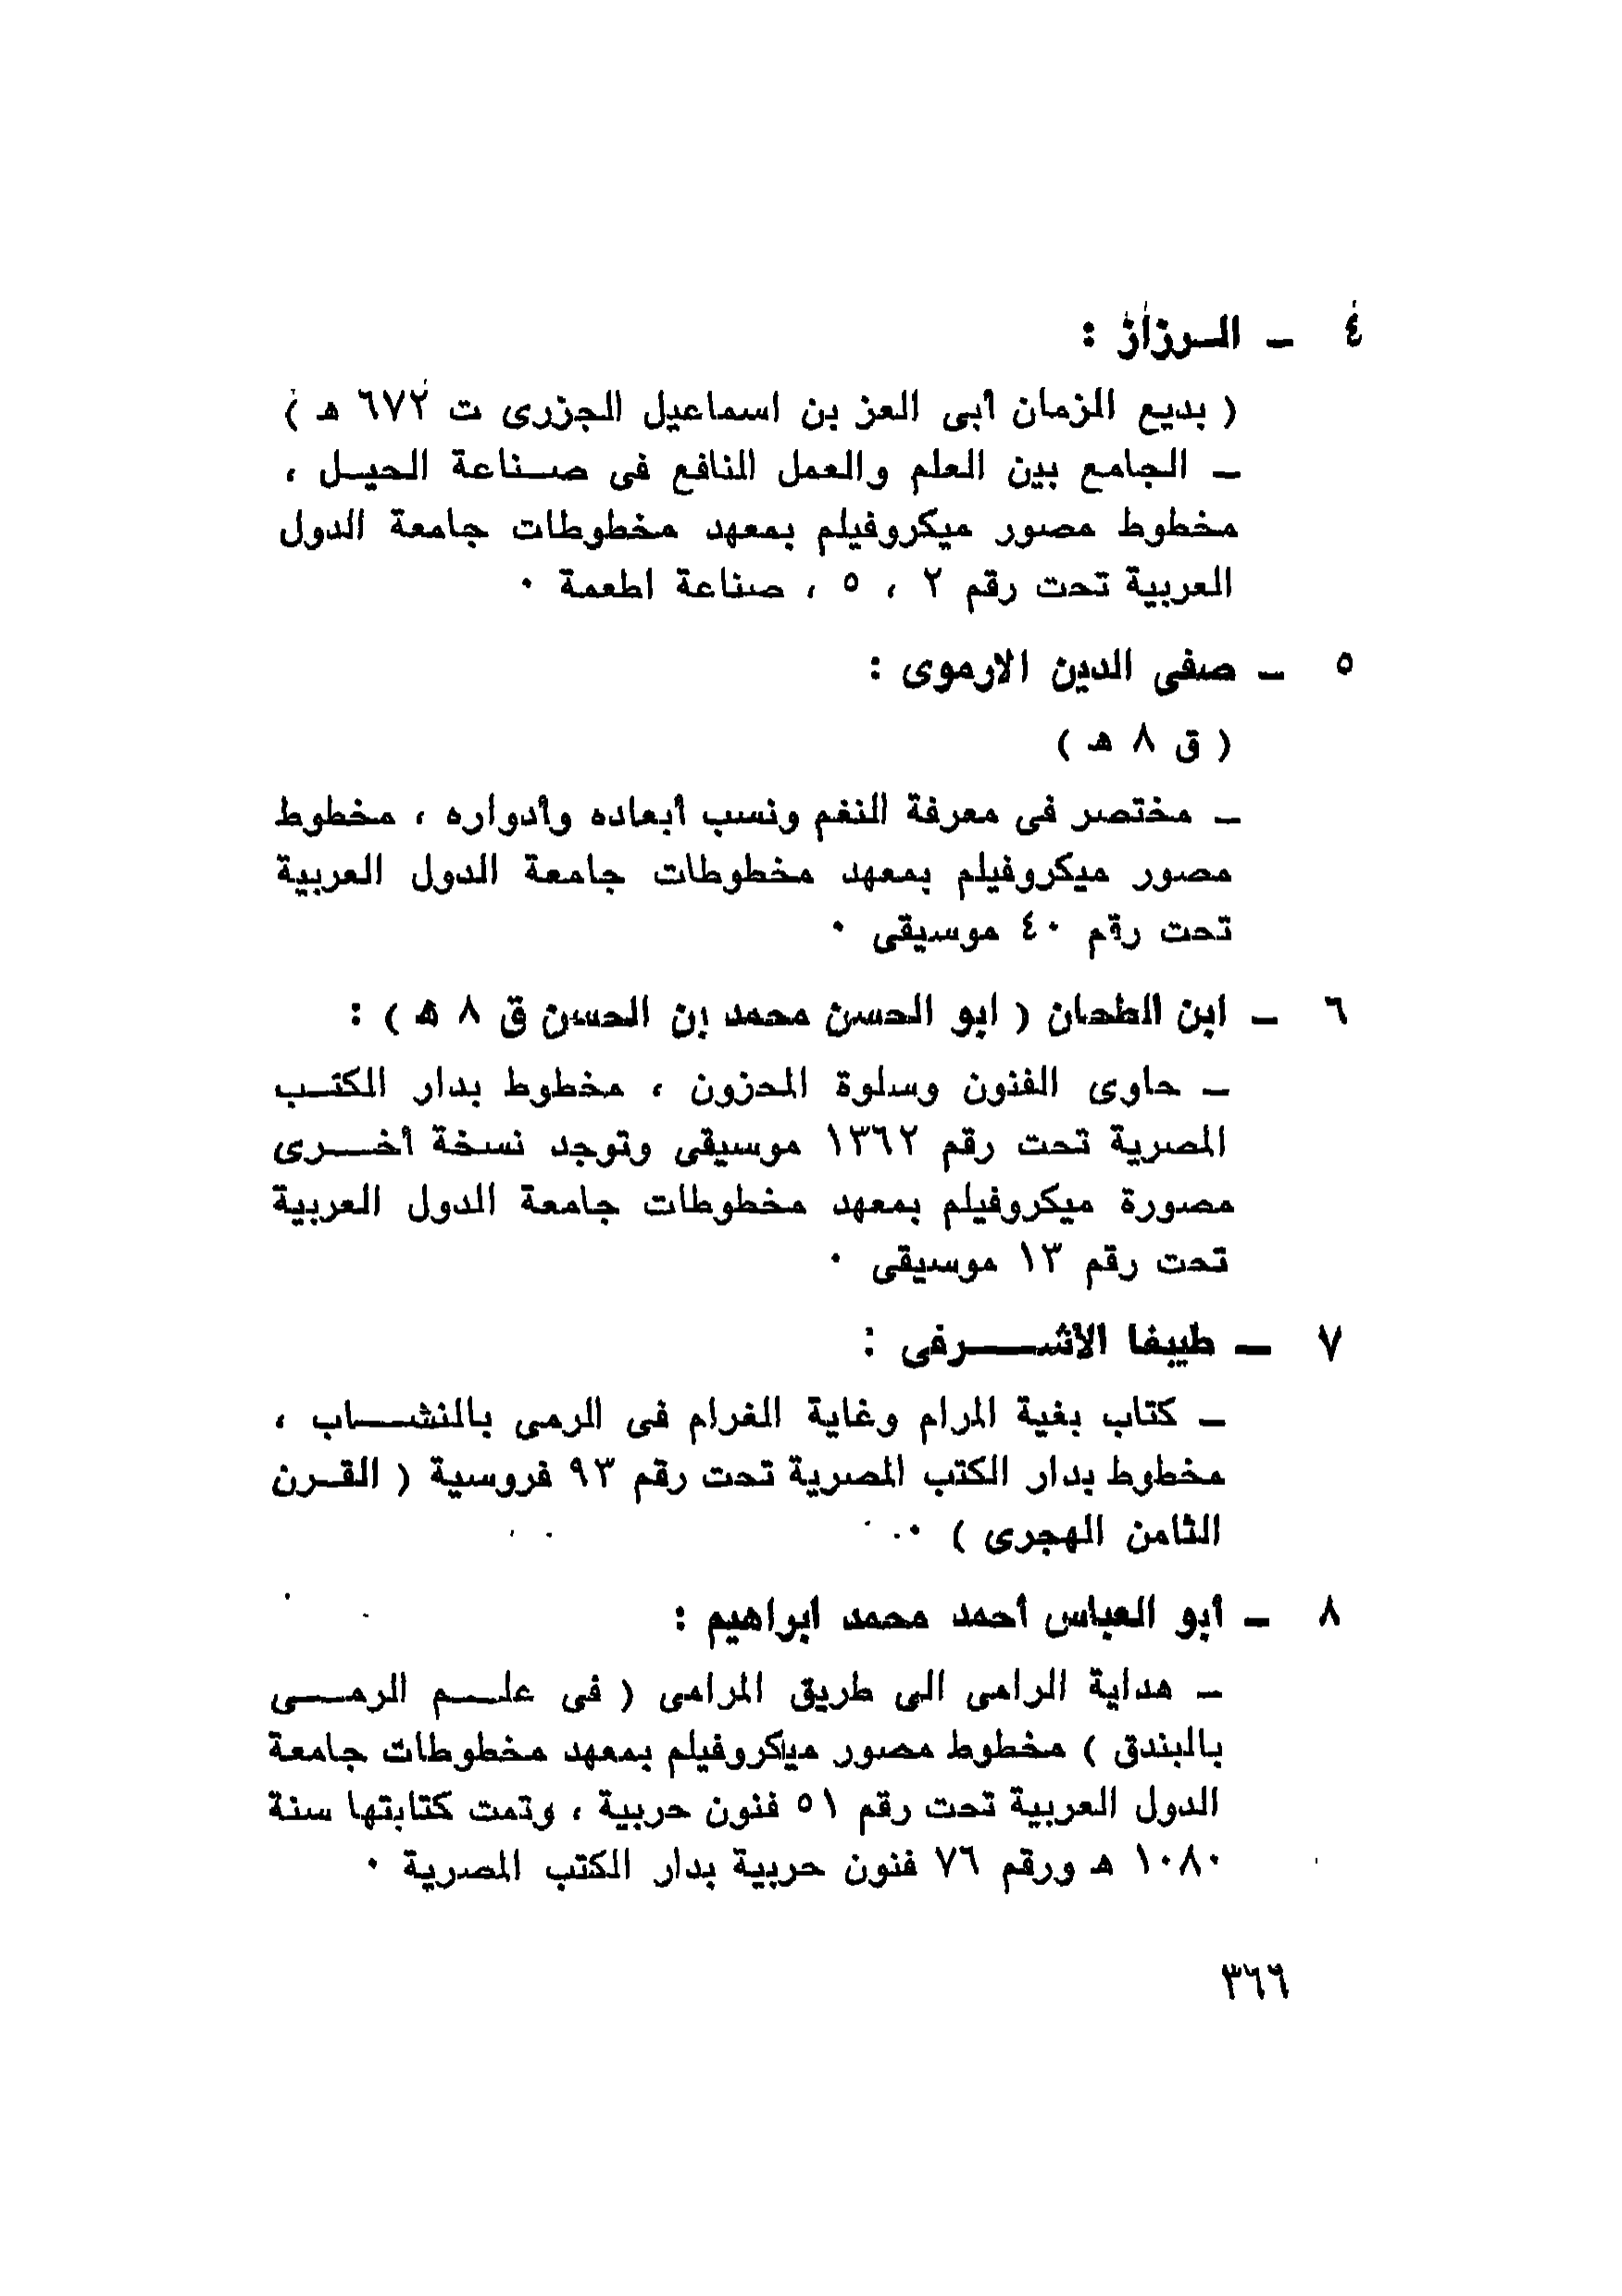 ٤ ـ الـرزاز :
( بديع الزمان أبى العز بن اسماعيل الجزرى ت ٦٧٢ هـ )
ـ الجامع بين العلم والعمل النافع فى صـناعة الحيـل ،
مخطوط مصور ميكروفيلم بمعهد مخطوطات جامعة الدول
العربية تحت رقم ٢ ، ٥ ، صناعة اطعمة ٠
٥ ـ صفى الدين الارموى :
( ق ٨ هـ )
ـ مختصر فى معرفة النغم ونسب أبعاده وأدواره ، مخطوط
مصور ميكروفيلم بمعهد مخطوطات جامعة الدول العربية
تحت رقم ٤٠ موسيقى ٠
٦ ـ ابن الطحان ( ابو الحسن محمد بن الحسن ق ٨ هـ ) :
ـ حاوى الفنون وسلوة المحزون ، مخطوط بدار الكتـب
المصرية تحت رقم ١٣٦٢ موسيقى وتوجد نسخة أخــرى
مصورة ميكروفيلم بمعهد مخطوطات جامعة الدول العربية
تحت رقم ١٣ موسيقى ٠
٧ ـ طيبغا الأشــرفى :
ـ كتاب بغية المرام وغاية الغرام فى الرمى بالنشــاب ،
مخطوط بدار الكتب المصرية تحت رقم ٩٣ فروسية ( القـرن
الثامن الهجرى ) ٠
٨ ـ أبو العباس أحمد محمد ابراهيم :
ـ هداية الرامى الى طريق المرامى ( فى علـم الرمــى
بالبندق ) مخطوط مصور ميكروفيلم بمعهد مخطوطات جامعة
الدول العربية تحت رقم ٥١ فنون حربية ، وتمت كتابتها سنة
١٠٨٠ هـ ورقم ٧٦ فنون حربية بدار الكتب المصرية ٠
٣٦٦